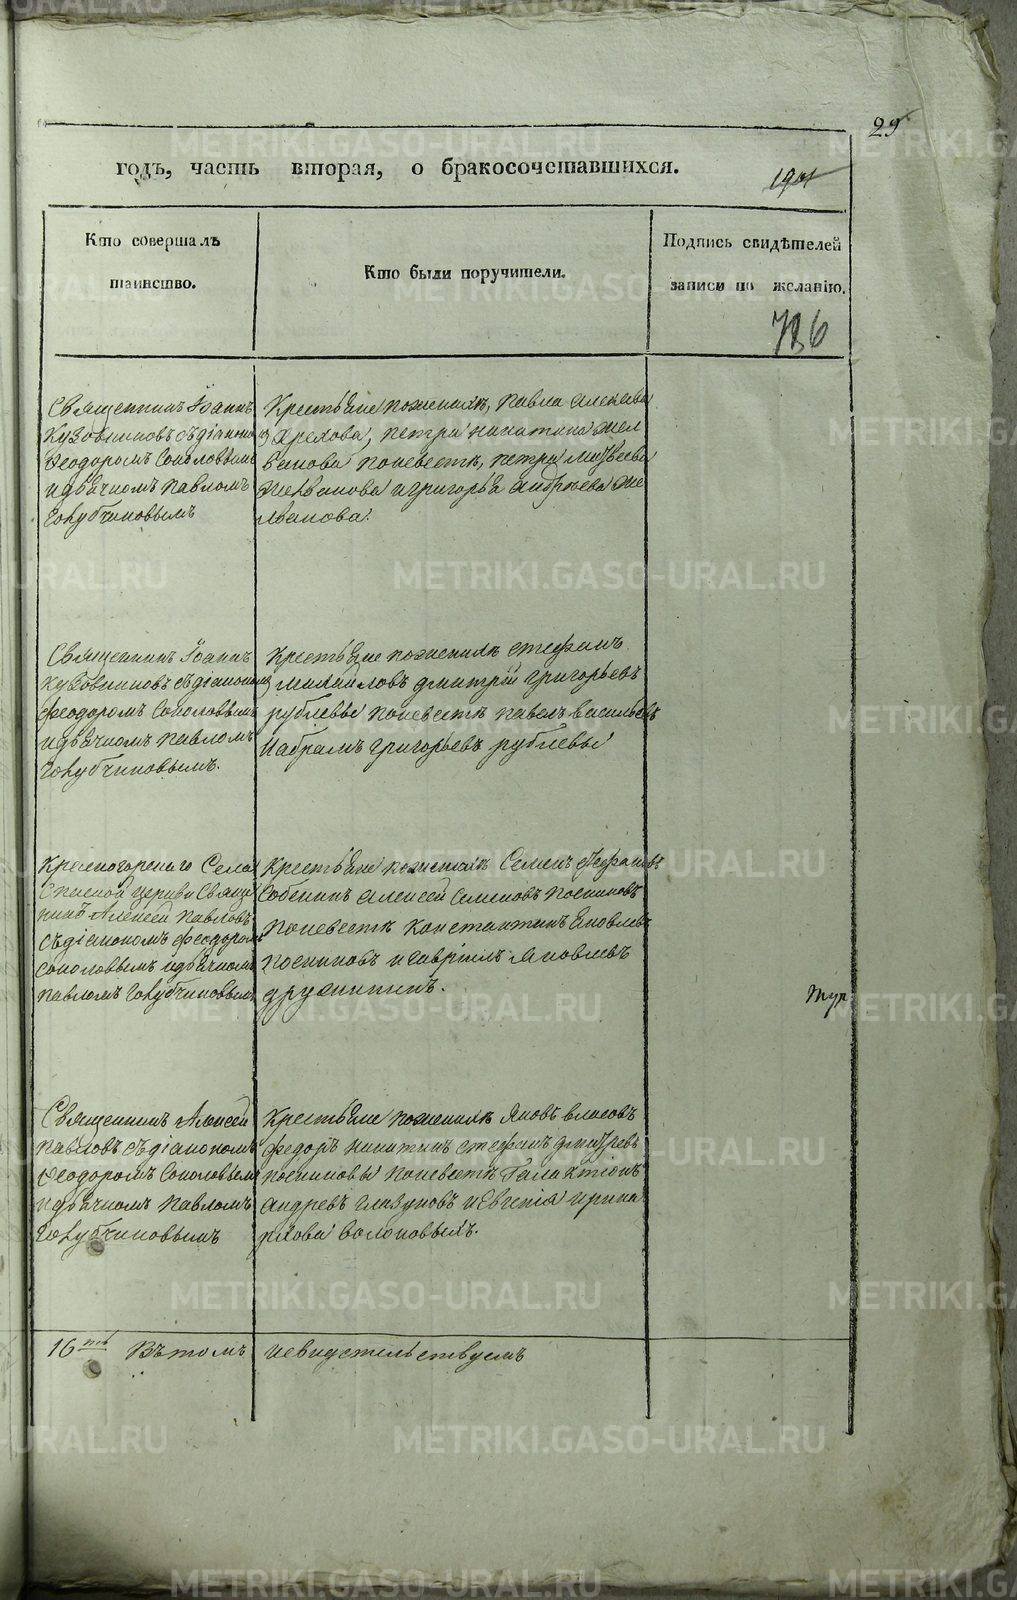 29
годъ, часть вторая, о бракосочетавшихся.
Кто совершалъ
таинство.
Кто были поручители.
Подпись свидѣтелей
записи по желанію.
736
Священникъ Іоаннъ
съ діакономъ
Феодоромъ Соколовымъ
и дьячкомъ Павломъ
Голубчиковымъ
Крестьяне по женихѣ, Павла Алексѣева
Орехова, Петра Никитина Жел
ванова по невестѣ, Петра Матвѣева
Желванова и Григорья Андрѣева Же
лванова.
Священникъ Іоаннъ
съ діакономъ
Феодоромъ Соколовымъ
и дьячкомъ Павломъ
Голубчиковымъ.
Крестьяне по женихѣ Стефанъ
Михайловъ Дмитрій Григорьевъ
Рублевы по невестѣ Павелъ Васильевъ
и Абрамъ Григорьевъ Рублевы
Красногорскаго Села
Спаской церкви Свяще
нникъ Алексей Павловъ
съ діакономъ Феодоромъ
Соколовымъ и дьячкомъ
Павломъ Голубчиковымъ
Крестьяне по женихѣ Семенъ Стефановъ
Собенинъ Алексей Семеновъ Посниковъ
по невестѣ Константинъ Яковлевъ
Посниковъ и Гаврилъ Яковлевъ
Дружининъ.
Тур
Священникъ Алексей
Павловъ съ діакономъ
Феодоромъ Соколовымъ
и дьячкомъ Павломъ
Голубчиковымъ
Крестьяне по женихѣ Яковъ Власовъ
Федоръ Никитинъ Стефанъ
Посниковы по невестѣ Галактіонъ
Андреевъ Глазуновъ и Евгенія Ирина
рхова Волоковыхъ.
16 Въ томъ и свидетельствуемъ
METRIKI.GASO-URAL.RU